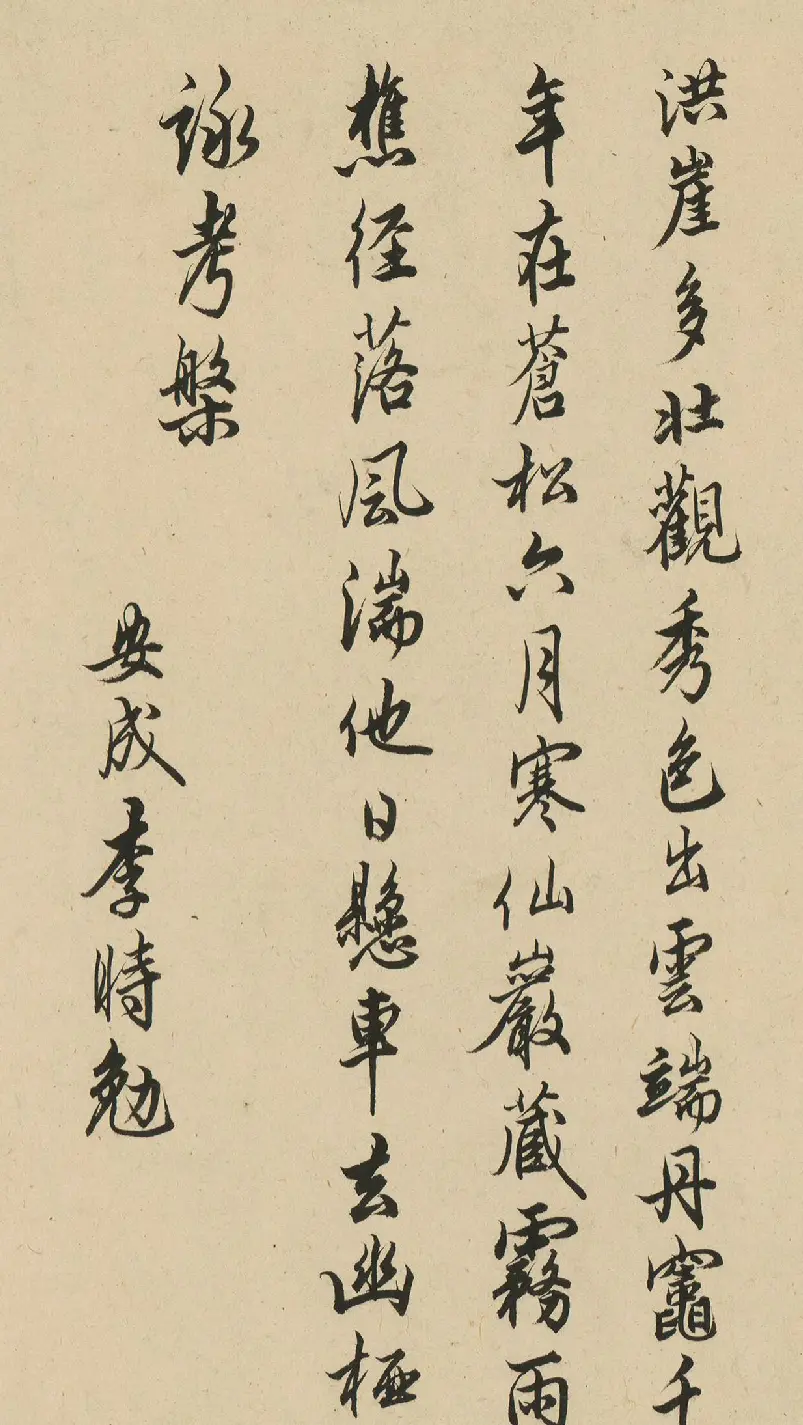 洪崖多壯觀秀色出雲端丹竈千
年在蒼松六月寒仙巖藏霧雨
樵径落風湍他日懸車去幽極
詠考槃
安成李時勉